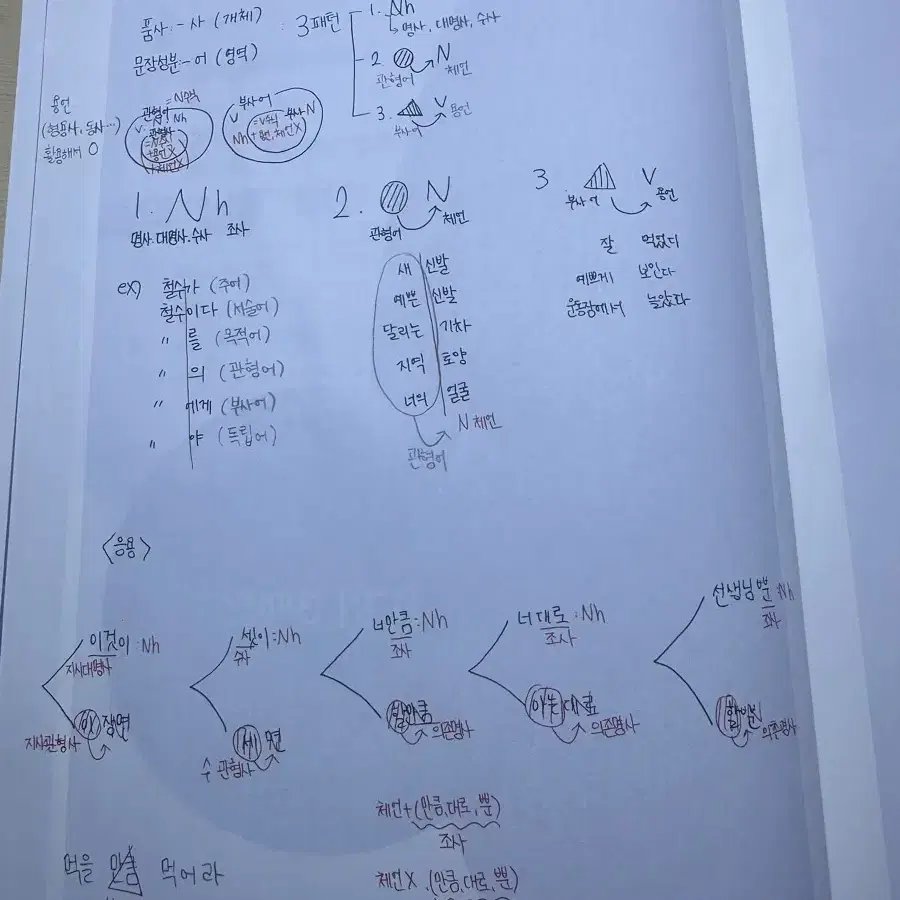 품사 : - 사 (개체)
문장성분 : - 어 (영역)
3패턴
1. Nh
↳ 명사, 대명사, 수사
2 N
관형어 체언
3. V
부사어 용언
용언
(형용사, 동사...)
활용해서 O
관형어 = N수식
관형사
부사어
부사
1. Nh
명사. 대명사. 수사 조사
ex) 철수가 (주어)
철수이다 (서술어)
〃 를 (목적어)
〃 의 (관형어)
〃 에게 (부사어)
〃 야 (독립어)
2. N
관형어 체언
새 신발
예쁜 신발
달리는 기차
지역 토양
너의 얼굴
N 체언
관형어
3. V
부사어 용언
잘 먹었다
예쁘게 보인다
운동장에서 놀았다
<응용>
이것이 : Nh
지시대명사
이 장면
지시관형사
셋이 : Nh
수사
세 명
수 관형사
너만큼 : Nh
조사
만큼
의존명사
너대로 : Nh
조사
대로
의존명사
선생님뿐 : Nh
조사
할 뿐
의존명사
체언+(만큼, 대로, 뿐)
조사
먹을 만큼 먹어라
체언X, (만큼, 대로, 뿐)